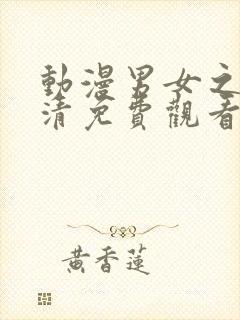 動漫男女之
清免費觀看
黃香蓮